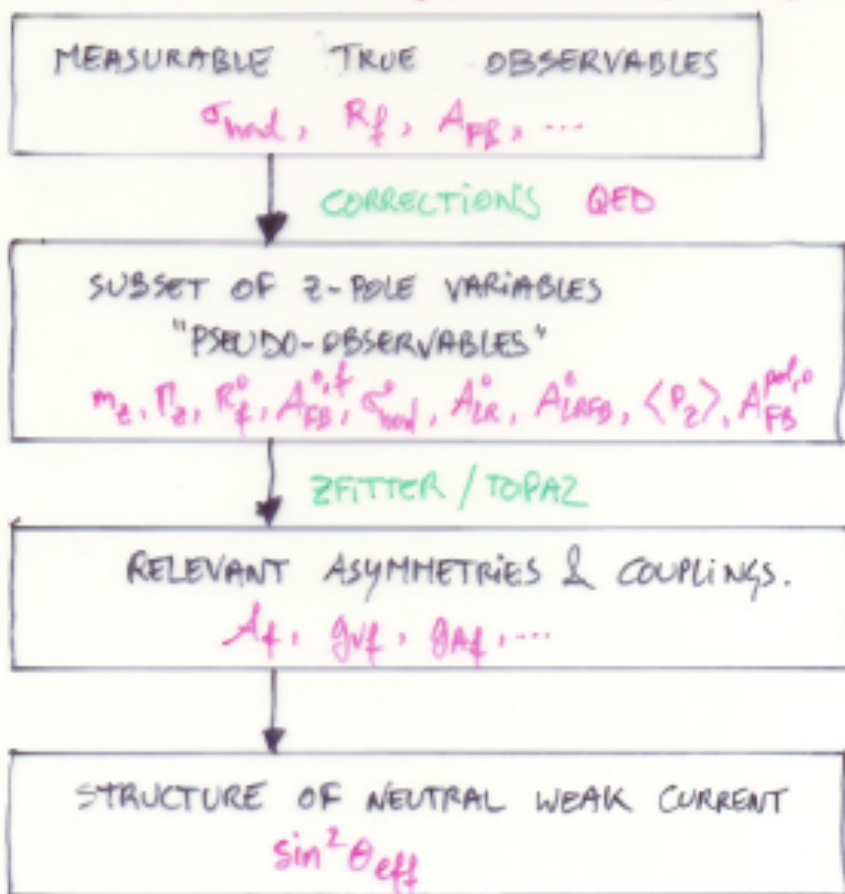 MEASURABLE TRUE OBSERVABLES
σ_had, R_f, A_FB, ...
CORRECTIONS QED
SUBSET OF Z-POLE VARIABLES
"PSEUDO-OBSERVABLES"
m_Z, Γ_Z, R_f^0, A_FB^{0,f}, σ_had^0, A_LR^0, A_LRFB^0, ⟨P_Z⟩, A_FB^{pol,0}
ZFITTER / TOPAZ
RELEVANT ASYMMETRIES & COUPLINGS.
A_f, g_Vf, g_Af, ...
STRUCTURE OF NEUTRAL WEAK CURRENT
sin² θ_eff